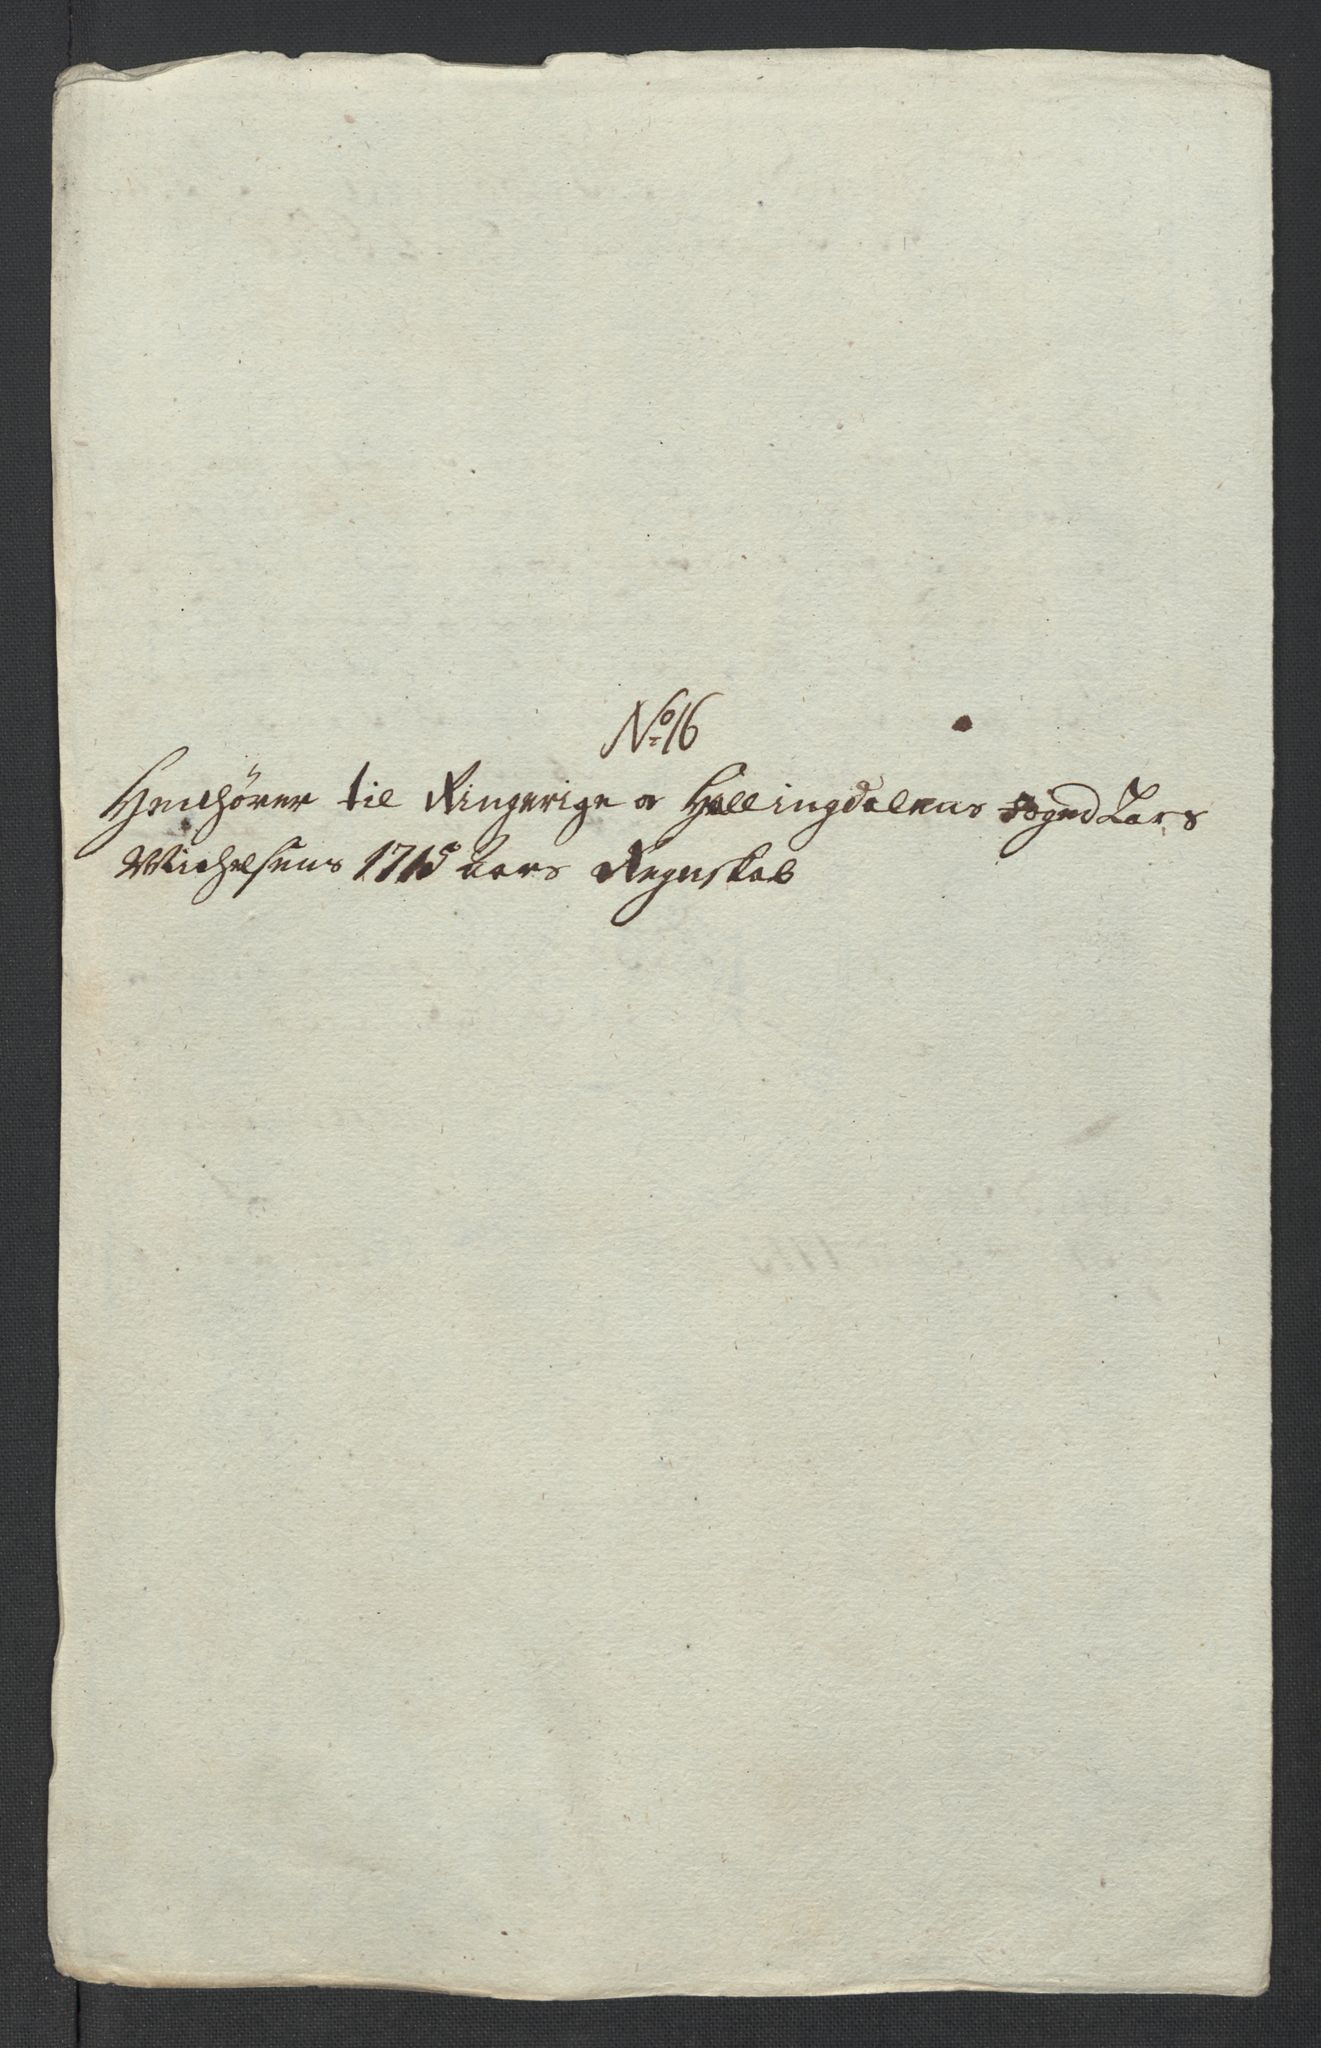 No: 16
Henhører til Ringerige og Hallingdalens foged Lars
Michelsens 1715 Aars Regnskab